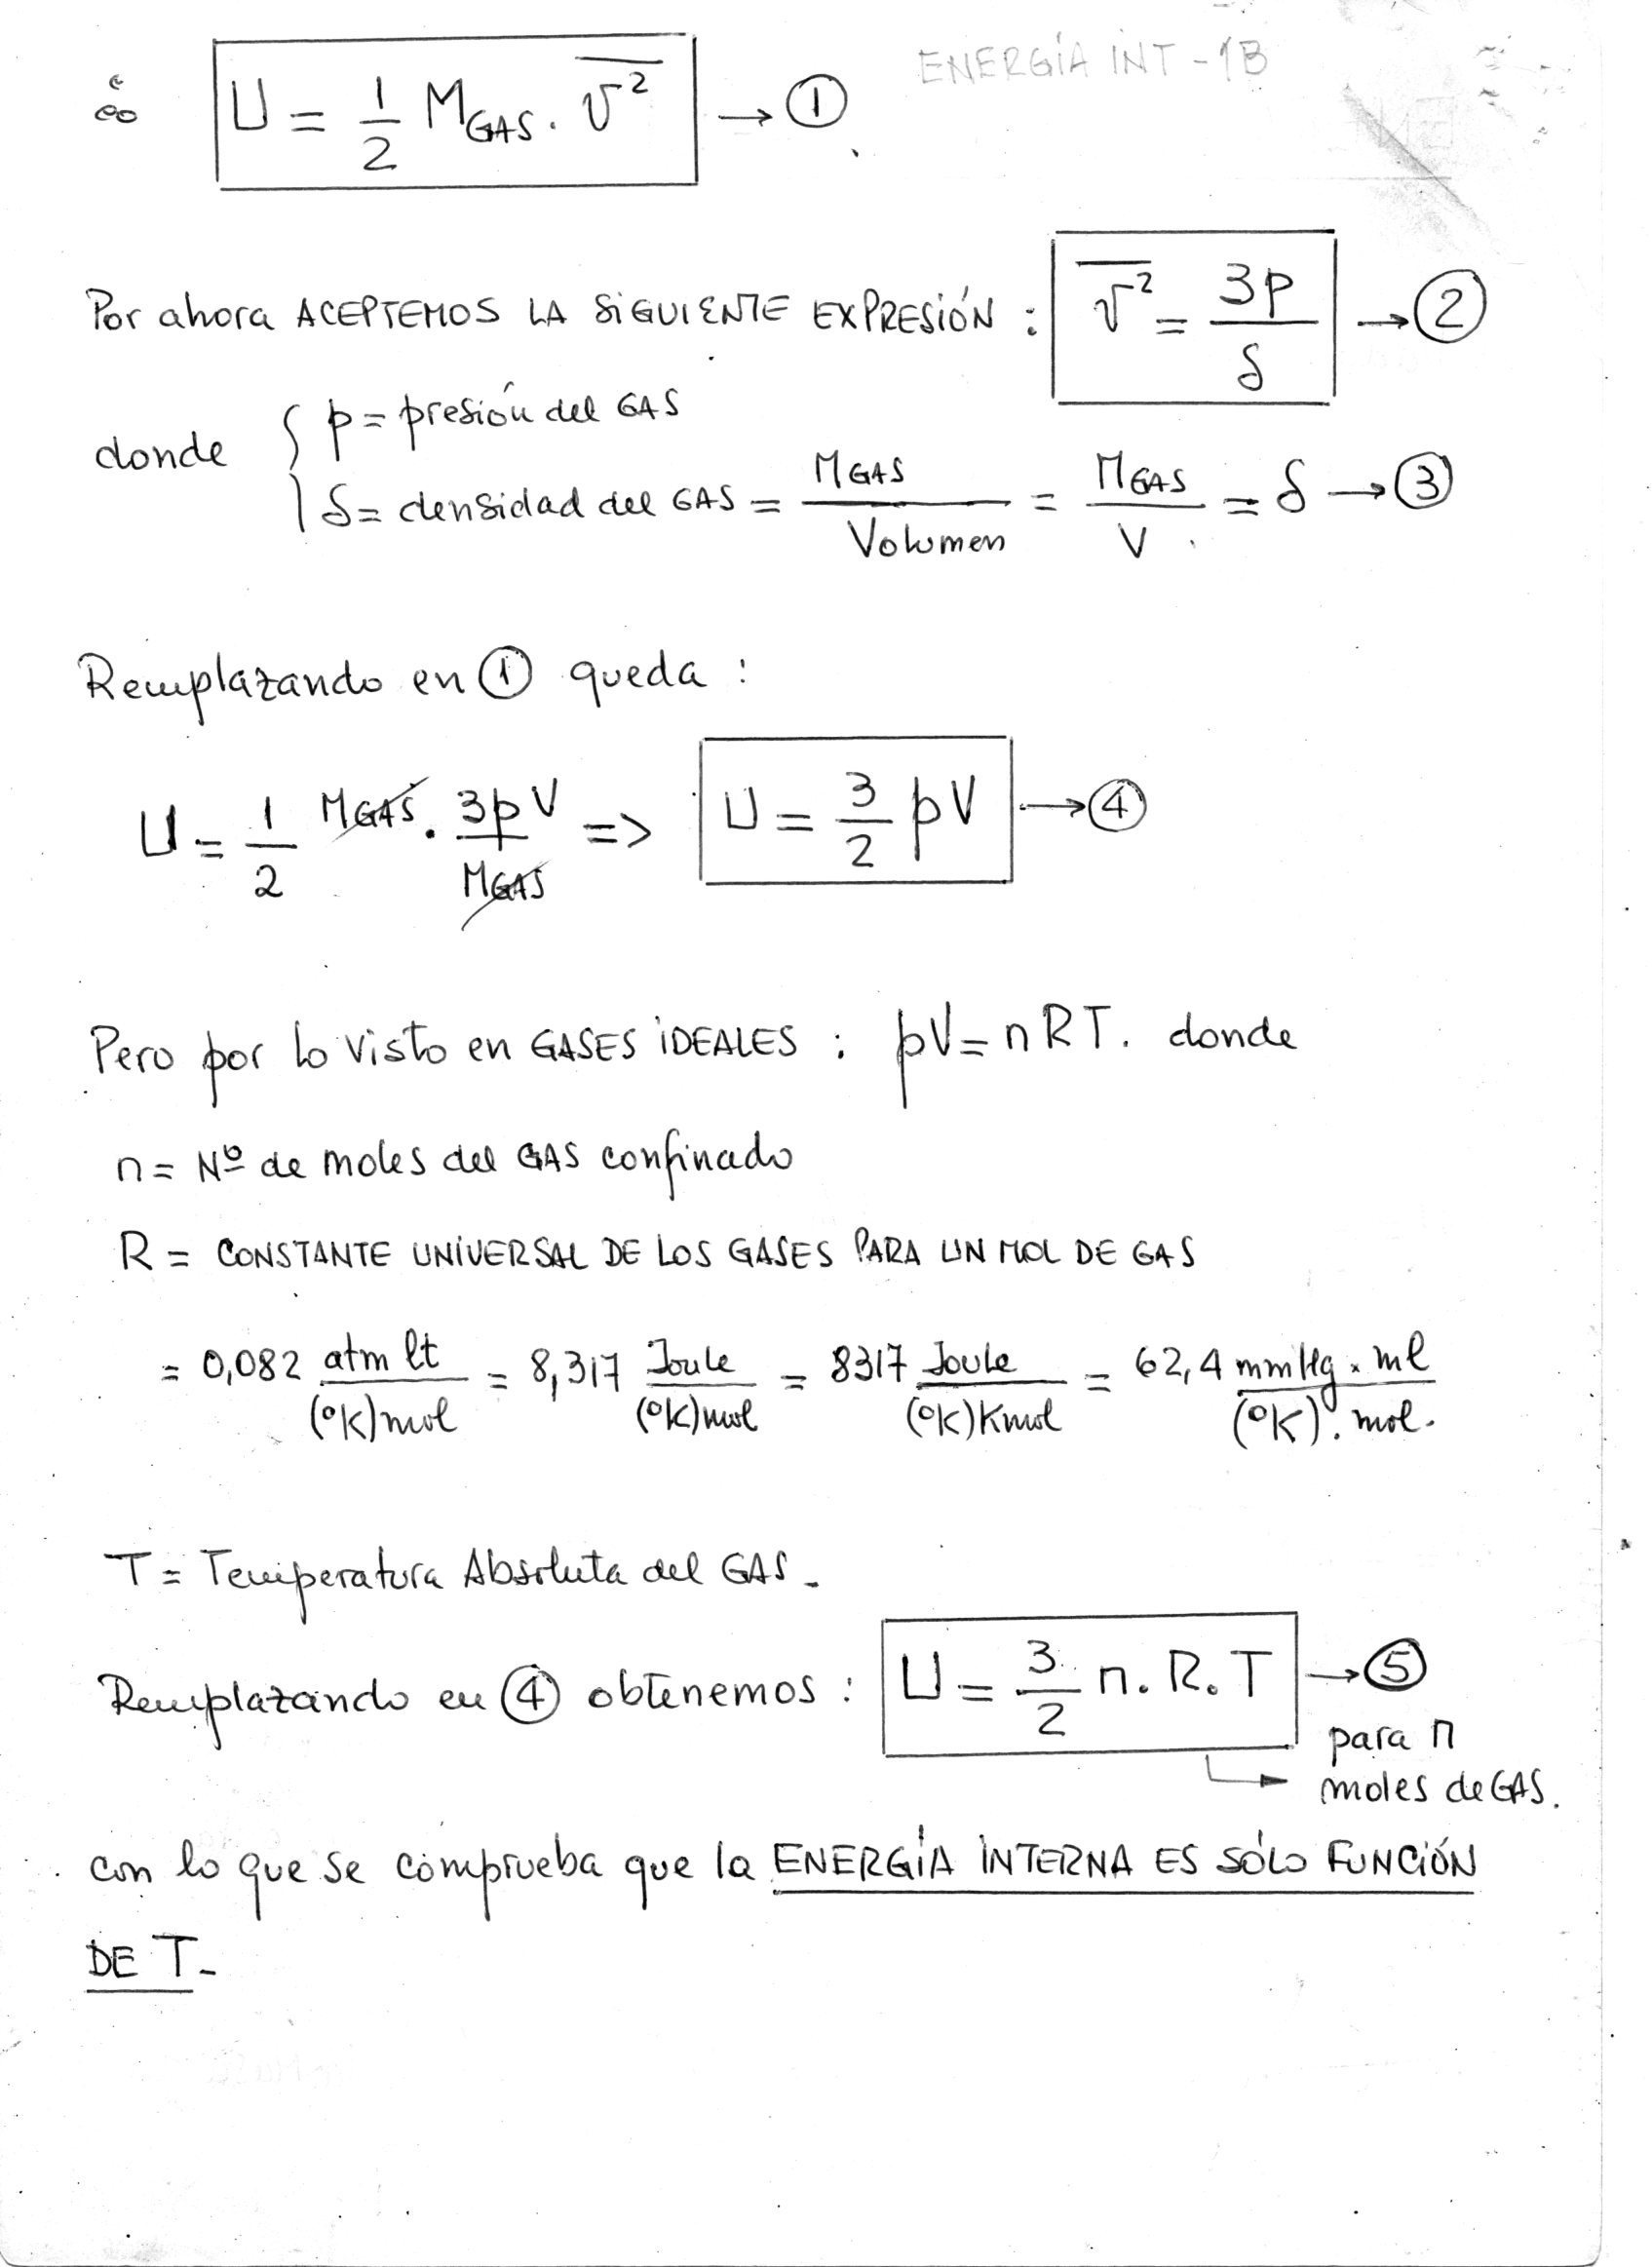 ENERGÍA INT - 1B
∴ U = 1/2 M_GAS . v̅² → ①
Por ahora ACEPTEMOS LA SIGUIENTE EXPRESIÓN : v̅² = 3p/δ → ②
donde { p = presión del GAS
δ = densidad del GAS = M_GAS/Volumen = M_GAS/V = δ → ③
Remplazando en ① queda :
U = 1/2 M_GAS . 3pV/M_GAS => U = 3/2 pV → ④
Pero por lo visto en GASES IDEALES : pV = nRT. donde
n = Nº de moles del GAS confinado
R = CONSTANTE UNIVERSAL DE LOS GASES PARA UN MOL DE GAS
= 0,082 atm lt/(°K)mol = 8,317 Joule/(°K)mol = 8317 Joule/(°K)Kmol = 62,4 mmHg . ml/(°K) . mol.
T = Temperatura Absoluta del GAS -
Remplazando en ④ obtenemos : U = 3/2 n. R. T → ⑤
para n
moles de GAS.
con lo que se comprueba que la ENERGÍA INTERNA ES SÓLO FUNCIÓN
DE T -